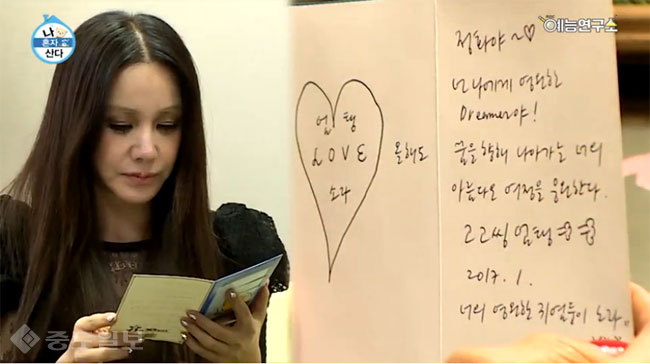 나
혼자
산다
예능연구소
정화야~♡
넌 나에게 영원한
Dreamer야!
엄탱
LOVE
소라
올해도
꿈을 향해 나아가는 너의
아름다운 여정을 응원한다.
고고씽 엄탱
2017. 1.
너의 영원한 귀염둥이 소라.
중도일보